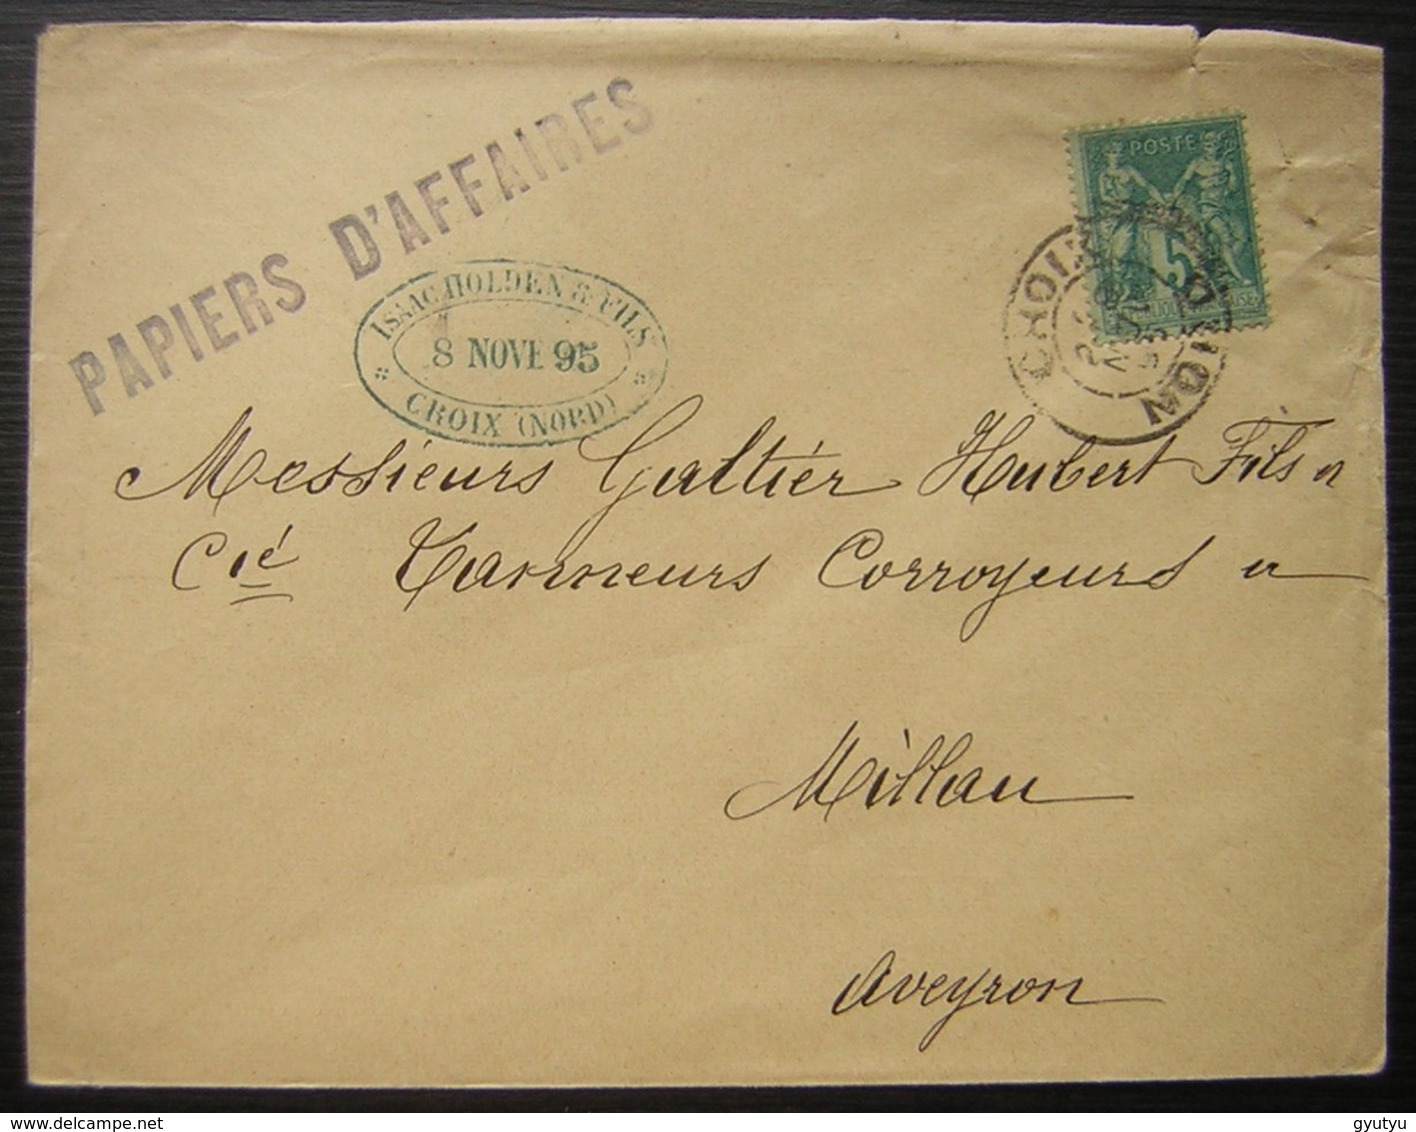 PAPIERS D'AFFAIRES
POSTE
5
ISAAC HOLDEN & FILS
8 NOVE 95
CROIX (NORD)
CROIX
NORD
Messieurs Galtier Hubert Fils et
Cie Tanneurs Corroyeurs et
Millau
Aveyron
delcampe.net
gyutyu